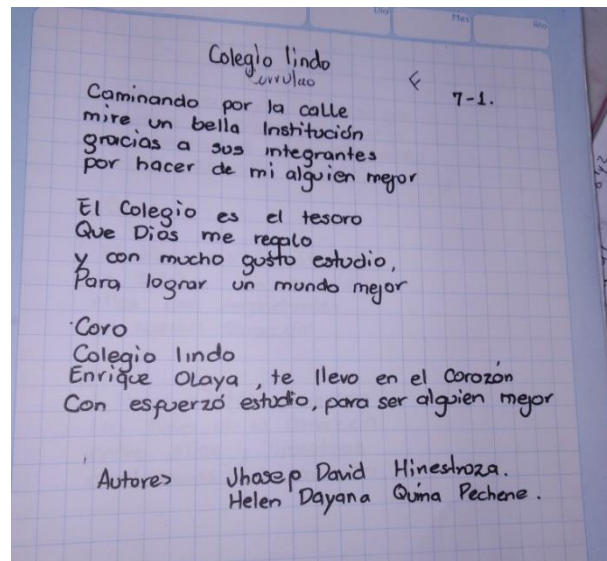 Dia
Mes
Año
Colegio lindo
Currulao
E
7-1.
Caminando por la calle
mire un bella Institución
gracias a sus integrantes
por hacer de mi alguien mejor
El Colegio es el tesoro
Que Dios me regalo
y con mucho gusto estudio,
Para lograr un mundo mejor
Coro
Colegio lindo
Enrique OLaya, te llevo en el Corazón
Con esfuerzó estudio, para ser alguien mejor
Autores Jhosep David Hinestroza.
Helen Dayana Quina Pechene.